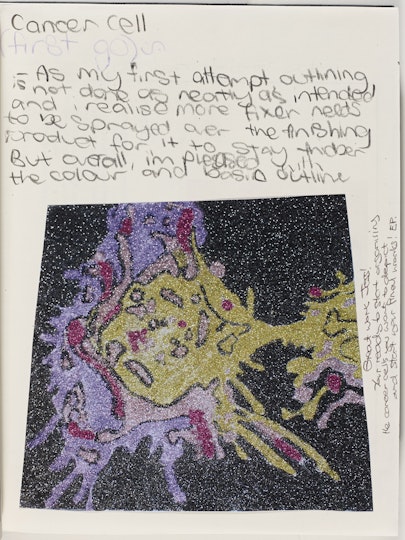 Cancer Cell
first go
- As my first attempt outlining
is not done as neatly as intended
and i realise more fixer needs
to be sprayed over the finishing
product for it to stay thicker
But overall, im pleased with
the colour and basic outline
Great work Tess!
Your ready to start organising
the cancer cells you want to depict
and start your final works! EP.